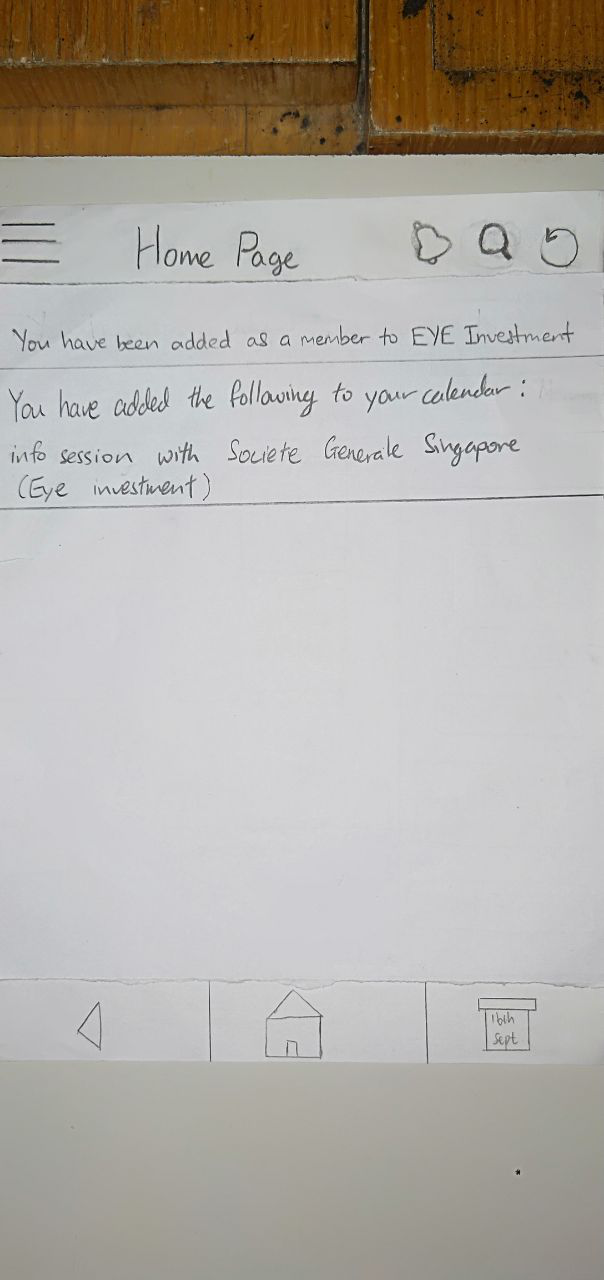 Home Page
You have been added as a member to EYE Investment
You have added the following to your calendar :
info session with Societe Generale Singapore
(Eye investment)
16th
Sept